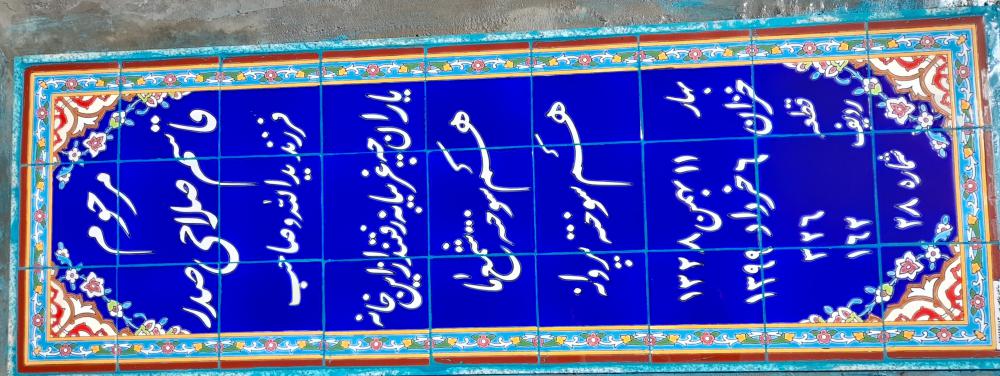 مرحوم
قاسم صلاحی صدر
فرزند یدالله و صاحب
یاران چه غریبانه رفتند از این خانه
هم سوخته شمع ما
هم سوخته پروانه
بهار ۱۱ بهمن ۱۳۲۸
خزان ۶ خرداد ۱۳۹۹
قطعه ۳۲۶
ردیف ۱۶۲
شماره ۲۸